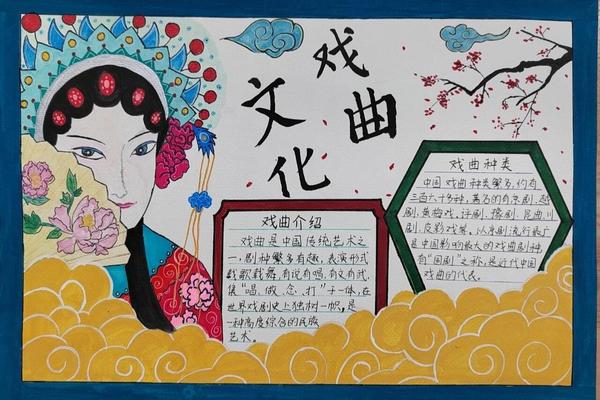 戏曲
文化
戏曲介绍
戏曲是中国传统艺术之
一,剧种繁多有趣,表演形式
载歌载舞,有说有唱,有文有武,
集“唱、做、念、打”于一体,在
世界戏剧史上独树一帜,是
一种高度综合的民族
艺术。
戏曲种类
中国戏曲种类繁多,约有
三百六十多种,著名的有京剧,越
剧,黄梅戏,评剧,豫剧,昆曲,川
剧,皮影戏等,以京剧流行最广
是中国影响最大的戏曲剧种,
有“国剧”之称,是近代中国
戏曲的代表。